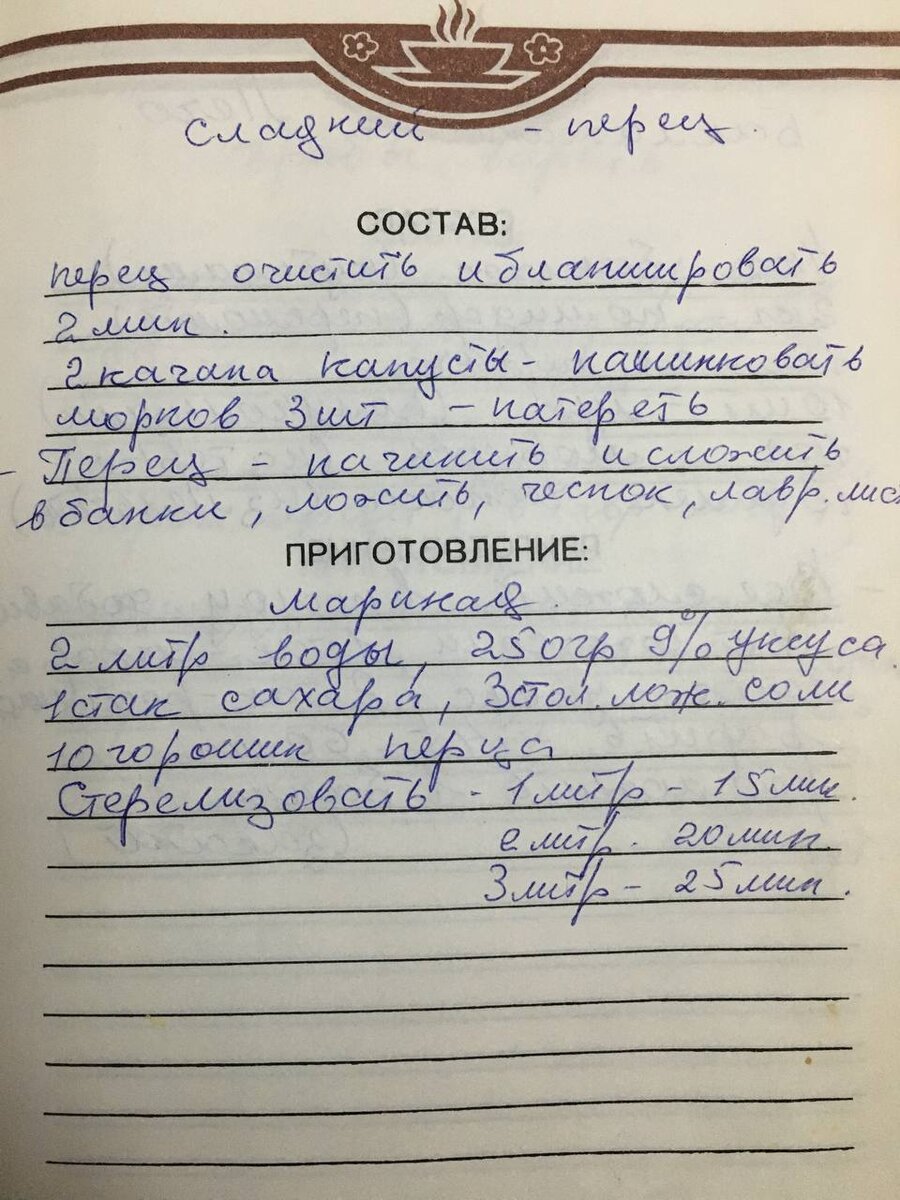 Сладкий - перец.
СОСТАВ:
перец очистить и бланшировать
2 мин.
2 качана капусты - нашинковать
морков 3 шт - натереть
- Перец - начинить и сложить
в банки, ложить, чеснок, лавр. лис
ПРИГОТОВЛЕНИЕ:
Маринад.
2 литр воды, 250 гр 9% уксуса
1 стак сахара, 3 стол. лож. соли
10 горошин перца
Стерелизовать - 1 литр - 15 мин.
2 литр. 20 мин.
3 литр - 25 мин.